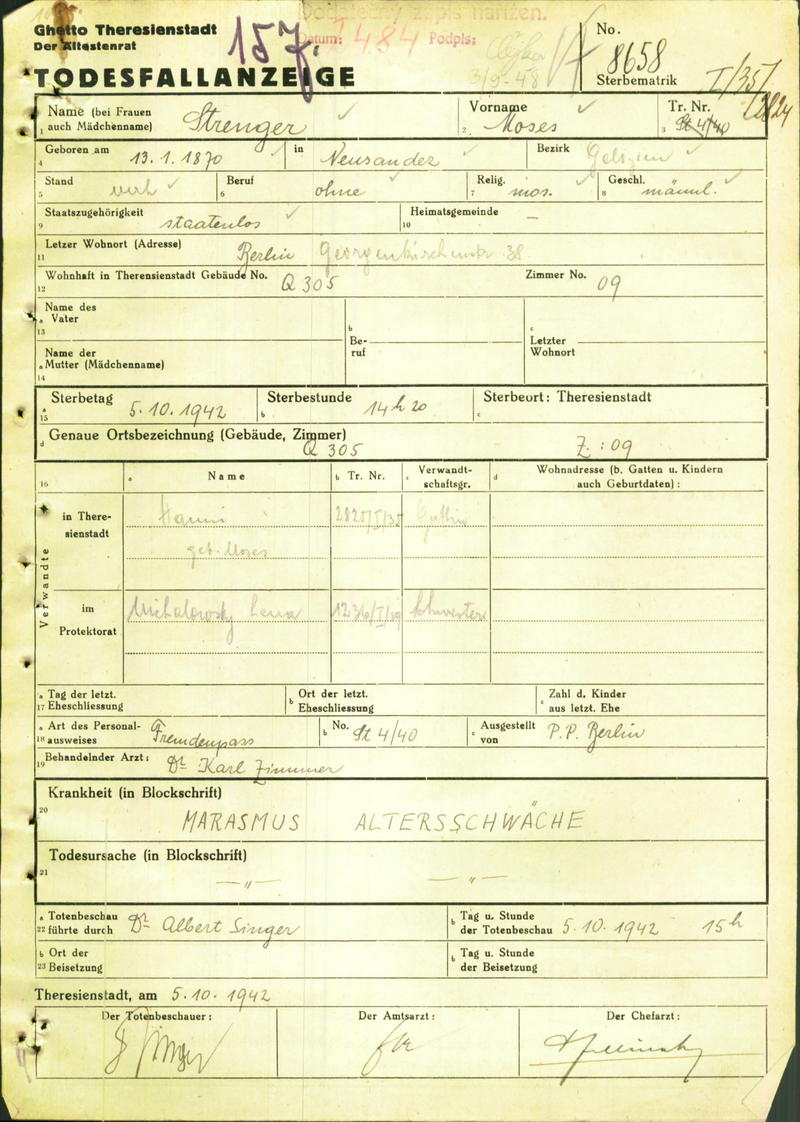 Dodatečný zápis nařízen.
Ghetto Theresienstadt
Der Ältestenrat
Datum: 484 Podpis:
157.
No. 8658
Sterbematrik
I/35/
TODESFALLANZEIGE
Name (bei Frauen auch Mädchenname) Strenger
Vorname Moses
Tr. Nr. St 4/40
1 2 3
Geboren am 13. 1. 1870 in Neusandez Bezirk Galizien
4
Stand verh Beruf ohne Relig. mos. Geschl. männl.
5 6 7 8
Staatszugehörigkeit staatenlos Heimatsgemeinde —
9 10
Letzer Wohnort (Adresse) Berlin Georgenkirchenstr 38
11
Wohnhaft in Therensienstadt Gebäude No. Q 305 Zimmer No. 09
12
Name des
a Vater
13
b
Be-
ruf
c
Letzter
Wohnort
Name der
a Mutter (Mädchenname)
14
Sterbetag 5. 10. 1942 Sterbestunde 14 h 20 Sterbeort: Theresienstadt
a 15 b c
d Genaue Ortsbezeichnung (Gebäude, Zimmer) Q 305 Z : 09
16 a Name b Tr. Nr. c Verwandt-schaftsgr. d Wohnadresse (b. Gatten u. Kindern auch Geburtdaten) :
Verwandte
in There-sienstadt Hanni 2825/I/35 Gattin
geb. Moses
im Protektorat Michalowsky Lena 1236/I/ Schwester
a Tag der letzt.
17 Eheschliessung
b Ort der letzt.
Eheschliessung
c Zahl d. Kinder
aus letzt. Ehe
a Art des Personal-
18 ausweises Fremdenpass
b No. St 4/40
c Ausgestellt von P. P. Berlin
19 Behandelnder Arzt: Dr. Karl Zimmer
Krankheit (in Blockschrift)
20
MARASMUS ALTERSSCHWÄCHE
Todesursache (in Blockschrift)
21
— " — — " —
a Totenbeschau
22 führte durch Dr. Albert Singer
b Tag u. Stunde
der Totenbeschau 5. 10. 1942 15 h
b Ort der
23 Beisetzung
b Tag u. Stunde
der Beisetzung
Theresienstadt, am 5. 10. 1942
Der Totenbeschauer: Der Amtsarzt: Der Chefarzt: